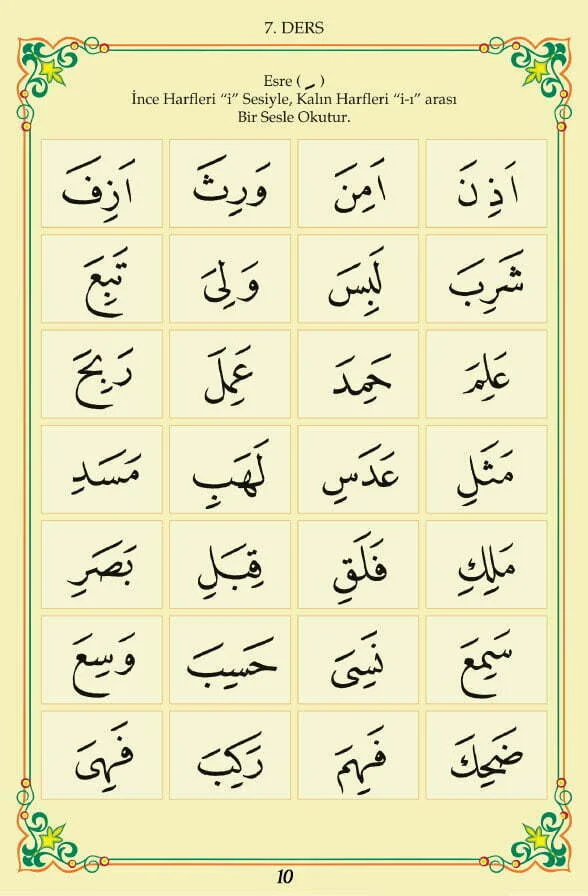 7. DERS
Esre ( ــِ )
İnce Harfleri “i” Sesiyle, Kalın Harfleri “i-ı” arası
Bir Sesle Okutur.
اَذِنَ اَمِنَ وَرِثَ اَزِفَ
شَرِبَ لَبِسَ وَلِىَ تَبِعَ
عَلِمَ حَمِدَ عَمِلَ رَبِحَ
مَثَلِ عَدَسِ لَهَبِ مَسَدِ
مَلِكِ فَلَقِ قِبَلِ بَصَرِ
سَمِعَ نَسِىَ حَسِبَ وَسِعَ
ضَحِكَ فَهِمَ رَكِبَ فَهِىَ
10